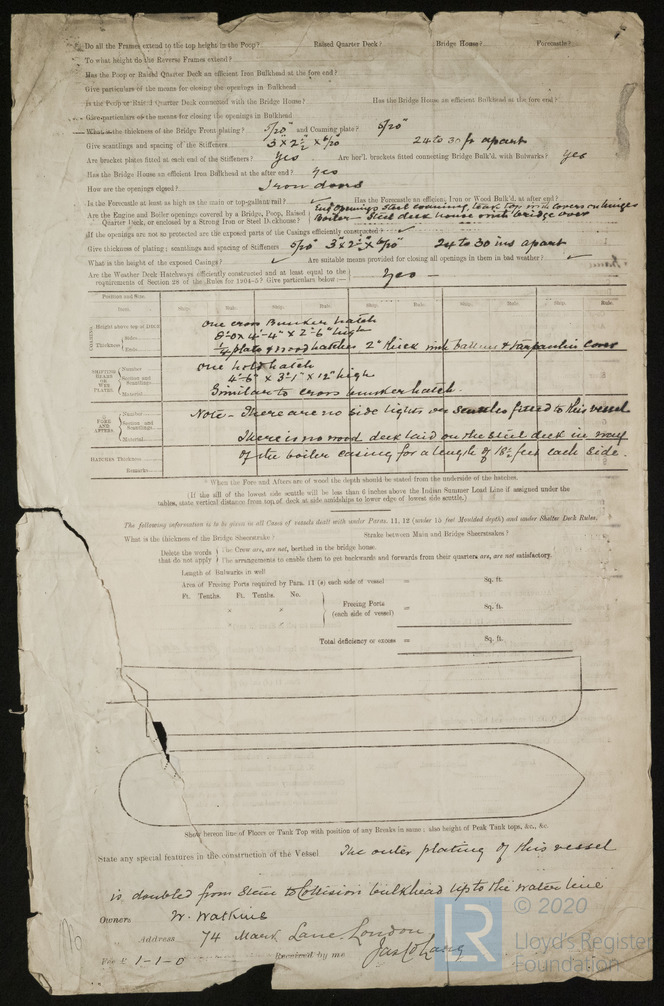 Do all the Frames extend to the top height in the Poop? Raised Quarter Deck? Bridge House? Forecastle?
To what height do the Reverse Frames extend?
Has the Poop or Raised Quarter Deck an efficient Iron Bulkhead at the fore end?
Give particulars of the means for closing the openings in Bulkhead
Is the Poop or Raised Quarter Deck connected with the Bridge House? Has the Bridge House an efficient Bulkhead at the fore end?
Give particulars of the means for closing the openings in Bulkhead
What is the thickness of the Bridge Front plating? 5/20" and Coaming plate? 5/20"
Give scantlings and spacing of the Stiffeners 3" x 2 1/2" x 6/20" 24 to 30 apart
Are bracket plates fitted at each end of the Stiffeners? Yes Are hor'l. brackets fitted connecting Bridge Bulk'd. with Bulwarks? Yes
Has the Bridge House an efficient Iron Bulkhead at the after end? Yes
How are the openings closed? Iron doors
Is the Forecastle at least as high as the main or top-gallant rail? ✓ Has the Forecastle an efficient Iron or Wood Bulk'd. at after end?
Are the Engine and Boiler openings covered by a Bridge, Poop, Raised Eng Openings steel coaming, teak top with covers on hinges
Quarter Deck, or enclosed by a Strong Iron or Steel Deckhouse? Boiler - Steel deck house with bridge over
If the openings are not so protected are the exposed parts of the Casings efficiently constructed? ✓
Give thickness of plating; scantlings and spacing of Stiffeners 5/20" 3" x 2 1/2" x 6/20" 24 to 30 ins apart
What is the height of the exposed Casings? ✓ Are suitable means provided for closing all openings in them in bad weather? ✓
Are the Weather Deck Hatchways efficiently constructed and at least equal to the
requirements of Section 28 of the Rules for 1904-5? Give particulars below:— Yes —
Position and Size.
Item. Ship. Rule. Ship. Rule. Ship. Rule. Ship. Rule.
Height above top of DECK One cross Bunker hatch
8'-0 x 4'-4" x 2'-6" high
COAMINGS Thickness Sides. Ends. 1/4 plate & wood hatches 2" thick with battens & tarpaulin cover
SHIFTING BEAMS OR WEB PLATES. Number One hold hatch
Section and Scantlings. 4'-6" x 3'-1" x 12" high
Material Similar to cross bunker hatch.
FORE AND AFTERS. Number Note - There are no side lights or scuttles fitted to this vessel
Section and Scantlings.
Material There is no wood deck laid on the steel deck in way
HATCHES Thickness of the boiler casing for a length of 18 1/2 feet each side.
Remarks
* When the Fore and Afters are of wood the depth should be stated from the underside of the hatches.
(If the sill of the lowest side scuttle will be less than 6 inches above the Indian Summer Load Line if assigned under the
tables, state vertical distance from top of deck at side amidships to lower edge of lowest side scuttle.)
The following information is to be given in all Cases of vessels dealt with under Paras. 11, 12 (under 15 feet Moulded depth) and under Shelter Deck Rules.
What is the thickness of the Bridge Sheerstrake? Strake between Main and Bridge Sheerstrakes?
Delete the words The Crew are, are not, berthed in the bridge house.
that do not apply The arrangements to enable them to get backwards and forwards from their quarters are, are not satisfactory.
Length of Bulwarks in well
Area of Freeing Ports required by Para. 11 (e) each side of vessel = Sq. ft.
Ft. Tenths. Ft. Tenths. No.
× × Freeing Ports
(each side of vessel) = Sq. ft.
× ×
Total deficiency or excess = Sq. ft.
Show hereon line of Floors or Tank Top with position of any Breaks in same; also height of Peak Tank tops, &c., &c.
State any special features in the construction of the Vessel The outer plating of this vessel
is doubled from Stem to Collision bulkhead up to the water line
Owners W. Watkins
Address 74 Mark Lane London
Fee £ 1-1-0 Received by me
© 2020
LR
Lloyd's Register
Foundation